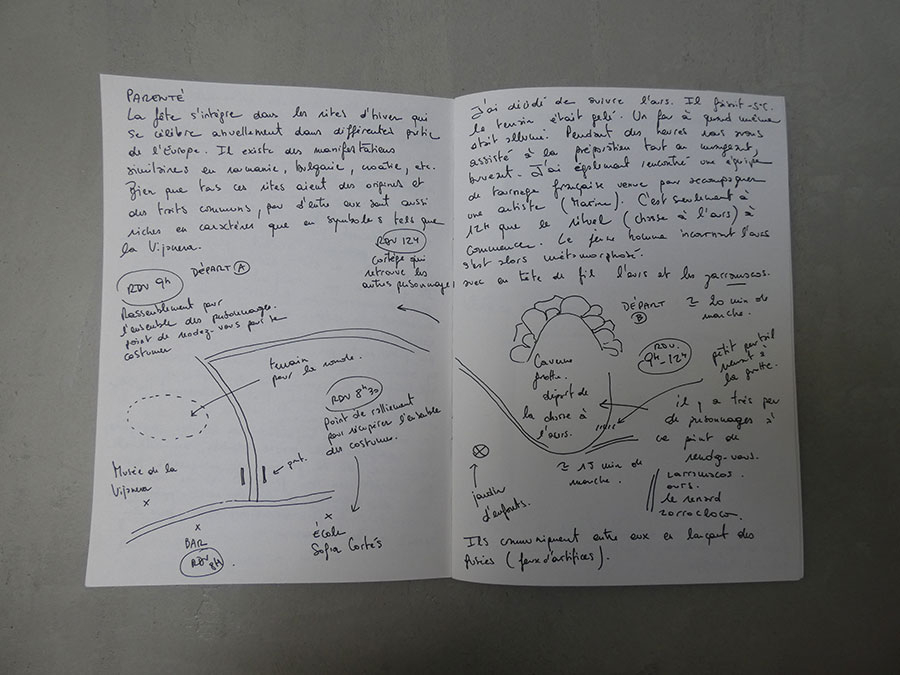 PARENTÉ
La fête s'intègre dans les rites d'hiver qui
se célèbre annuellement dans différentes partie
de l'Europe. Il existe des manifestations
similaires en roumanie, bulgarie, croatie, etc.
Bien que tous ces rites aient des origines et
des traits communs, peu d'entre eux sont aussi
riches en caractères que en symboles tels que
la Vijanera.
RDV 12H
Cortège qui
retrouve les
autres personnages
RDV 9H
DÉPART A
Rassemblement pour
l'ensemble des personnages.
point de rendez-vous pour se
costumer
terrain
pour la ronde.
RDV 8H30
Point de ralliement
pour récupérer l'ensemble
des costumes.
pont.
Musée de la
Vijanera
x
x
BAR
RDV 8H
x
École
Sofia Cortés
J'ai décidé de suivre l'ours. Il faisait -5°C.
le terrain était gelé. Un feu à quand même
était allumé. Pendant des heures nous avons
assisté à la préparation tout en mangeant,
buvant. J'ai également rencontré une équipe
de tournage française venue pour accompagner
une artiste (Marine). C'est seulement à
12H que le rituel (chasse à l'ours) à
commencer. Le jeune homme incarnant l'ours
s'est alors métamorphosé.
avec en tête de fil l'ours et les zarramacos.
DÉPART
B
≃ 20 min de
marche.
Caverne
grotte.
départ de
la chasse à
l'ours.
RDV.
9H-12H
petit portail
menant à
la grotte.
il y a très peu
de personnages à
ce point de
rendez-vous.
≃ 15 min de
marche.
zarramacos
ours.
le renard
zorrocloco.
jardin
d'enfants.
Ils communiquent entre eux en lançant des
fusées (feux d'artifices).